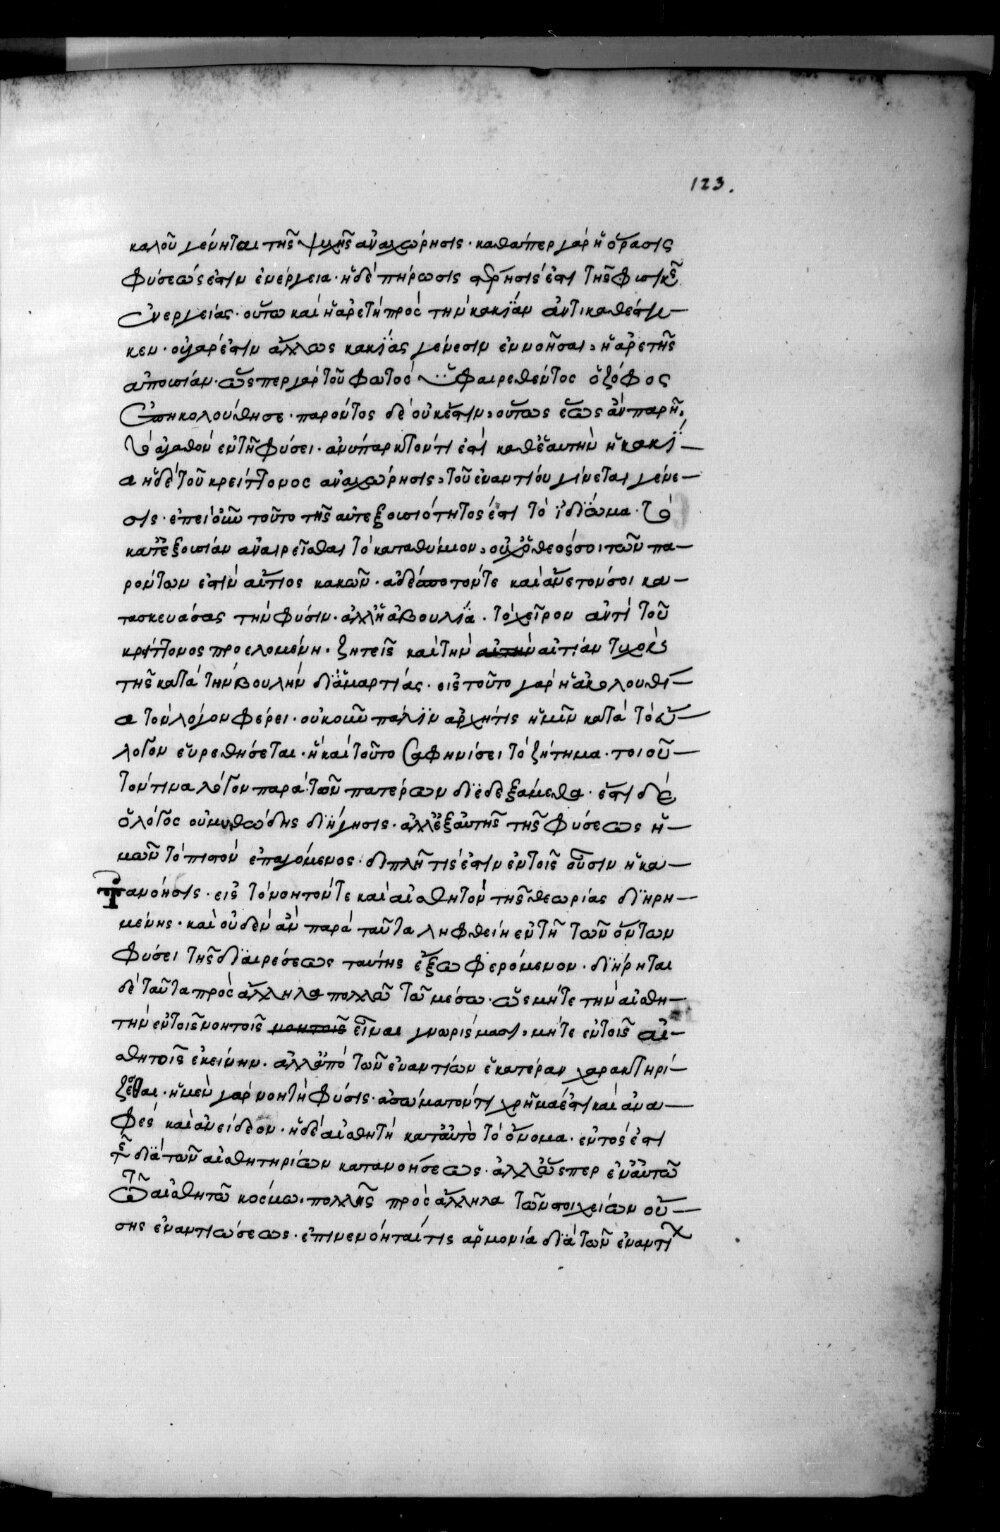 123.
καλοῦ γένηται τῆς ψυχῆς ἀναχώρησις· καθάπερ γὰρ ἡ ὅρασις
φύσεώς ἐστιν ἐνέργεια· ἡ δὲ πήρωσις στέρησίς ἐστι τῆς φυσικῆς
ἐνεργείας· οὕτω καὶ ἡ ἀρετὴ πρὸς τὴν κακΐαν ἀντικαθέστη-
κεν· οὐ γάρ ἐστιν ἄλλως κακΐας γένεσιν ἐννοῆσαι, ἢ ἀρετῆς
ἀπουσίαν· ὥσπερ γὰρ τοῦ φωτὸς ὑφαιρεθέντος ὁ ζόφος
ἐπηκολούθησε· παρόντος δὲ οὐκ ἔστιν, οὕτως ἕως ἂν παρῆ,
τὸ ἀγαθὸν ἐν τῆ φύσει· ἀνύπαρκτόν τι ἐστὶ καθ' ἑαυτὴν ἡ κακί-
α ἡ δὲ τοῦ κρείττονος ἀναχώρησις, τοῦ ἐναντίου γίνεται γένε-
σις· ἐπεὶ οὖν τοῦτο τῆς αὐτεξουσιότητός ἐστι τὸ ἰδίωμα· τὸ
κατ' ἐξουσίαν αἱρεῖσθαι τὸ καταθύμιον, οὐχ ὁ θεός σοι τῶν πα-
ρόντων ἐστὶν αἴτιος κακῶν· ἀδέσποτόν τε καὶ ἄνετόν σοι κα-
τασκευάσας τὴν φύσιν· ἀλλ' ἡ ἀβουλία· τὸ χεῖρον ἀντὶ τοῦ
κρίττονος προελομένη· ζητεῖς καὶ τὴν αἰτίαν τυχὸν
τῆς κατὰ τὴν βουλὴν διαμαρτίας· εἰς τοῦτο γὰρ ἡ ἀκολουθί-
α τὸν λόγον φέρει· οὐκοῦν πάλιν ἀρχή τις ἡμῖν κατὰ τὸ εὔ-
λογον εὑρεθήσεται· ἣ καὶ τοῦτο σαφηνίσει τὸ ζήτημα· τοιοῦ-
τόν τινα λόγον παρὰ τῶν πατέρων διεδεξάμεθα· ἔστι δὲ
ὁ λόγος οὐ μυθώδης διήγησις· ἀλλ' ἐξ αὐτῆς τῆς φύσεως ἡ-
μῶν τὸ πιστὸν ἐπαγόμενος· διπλῆ τίς ἐστιν ἐν τοῖς οὖσιν ἡ κα-
τανόησις· εἰς τὸ νοητόν τε καὶ αἰσθητὸν τῆς θεωρίας διηρη-
μένης· καὶ οὐδὲν ἂν παρὰ ταῦτα ληφθείη ἐν τῆ τῶν ὄντων
φύσει τῆς διαιρέσεως ταύτης ἔξω φερόμενον· διήρηται
δὲ ταῦτα πρὸς ἄλληλα πολλῶ τῶ μέσω· ὡς μήτε τὴν αἰσθη-
τὴν ἐν τοῖς νοητοῖς νοητοῖς εἶναι γνωρίσμασι, μήτε ἐν τοῖς αἰ-
σθητοῖς ἐκείνην· ἀλλ' ἀπὸ τῶν ἐναντίων ἑκατέραν χαρακτηρί-
ζεσθαι· ἡ μὲν γὰρ νοητὴ φύσις· ἀσώματόν τι χρῆμά ἐστι καὶ ἀνα-
φὲς καὶ ἀνείδεον· ἡ δὲ αἰσθητὴ κατ' αὐτὸ τὸ ὄνομα· ἐντός ἐστι
τῆς διὰ τῶν αἰσθητηρίων κατανοήσεως· ἀλλ' ὥσπερ ἐν αὐτῶ
τῶ αἰσθητῶ κόσμω, πολλῆς πρὸς ἄλληλα τῶν στοιχείων οὔ-
σης ἐναντιώσεως· ἐπινενόηταί τις ἁρμονία διὰ τῶν ἐναντί